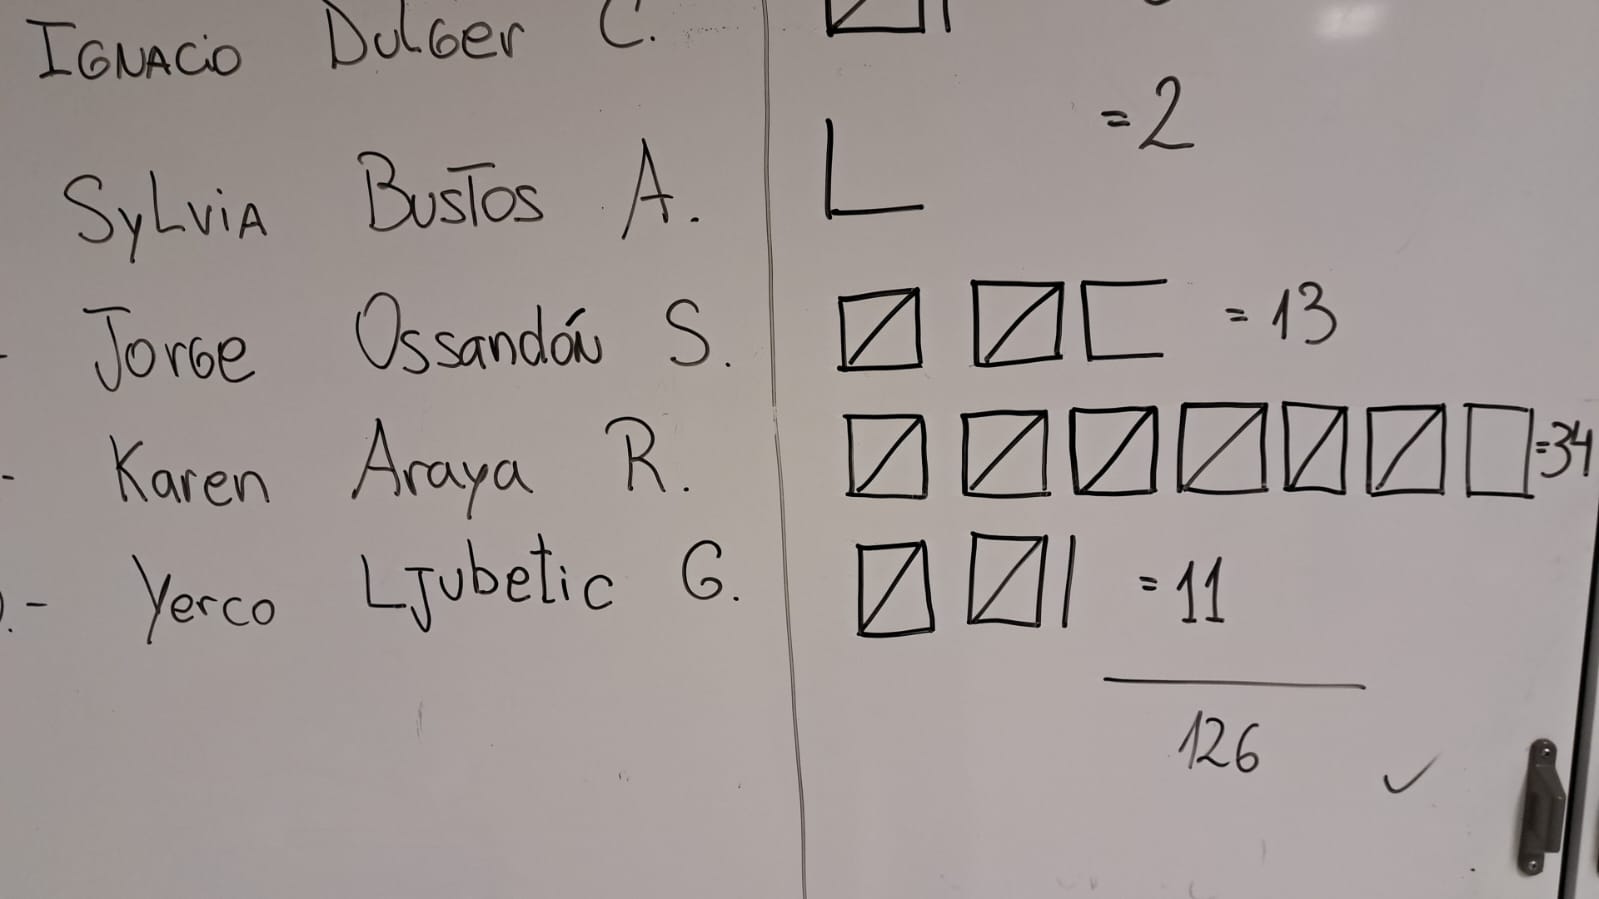 IGNACIO DULGER C.
SYLVIA BUSTOS A. = 2
JORGE OSSANDÓN S. = 13
KAREN ARAYA R. = 34
.- YERCO LJUBETIC G. = 11
126 ✓